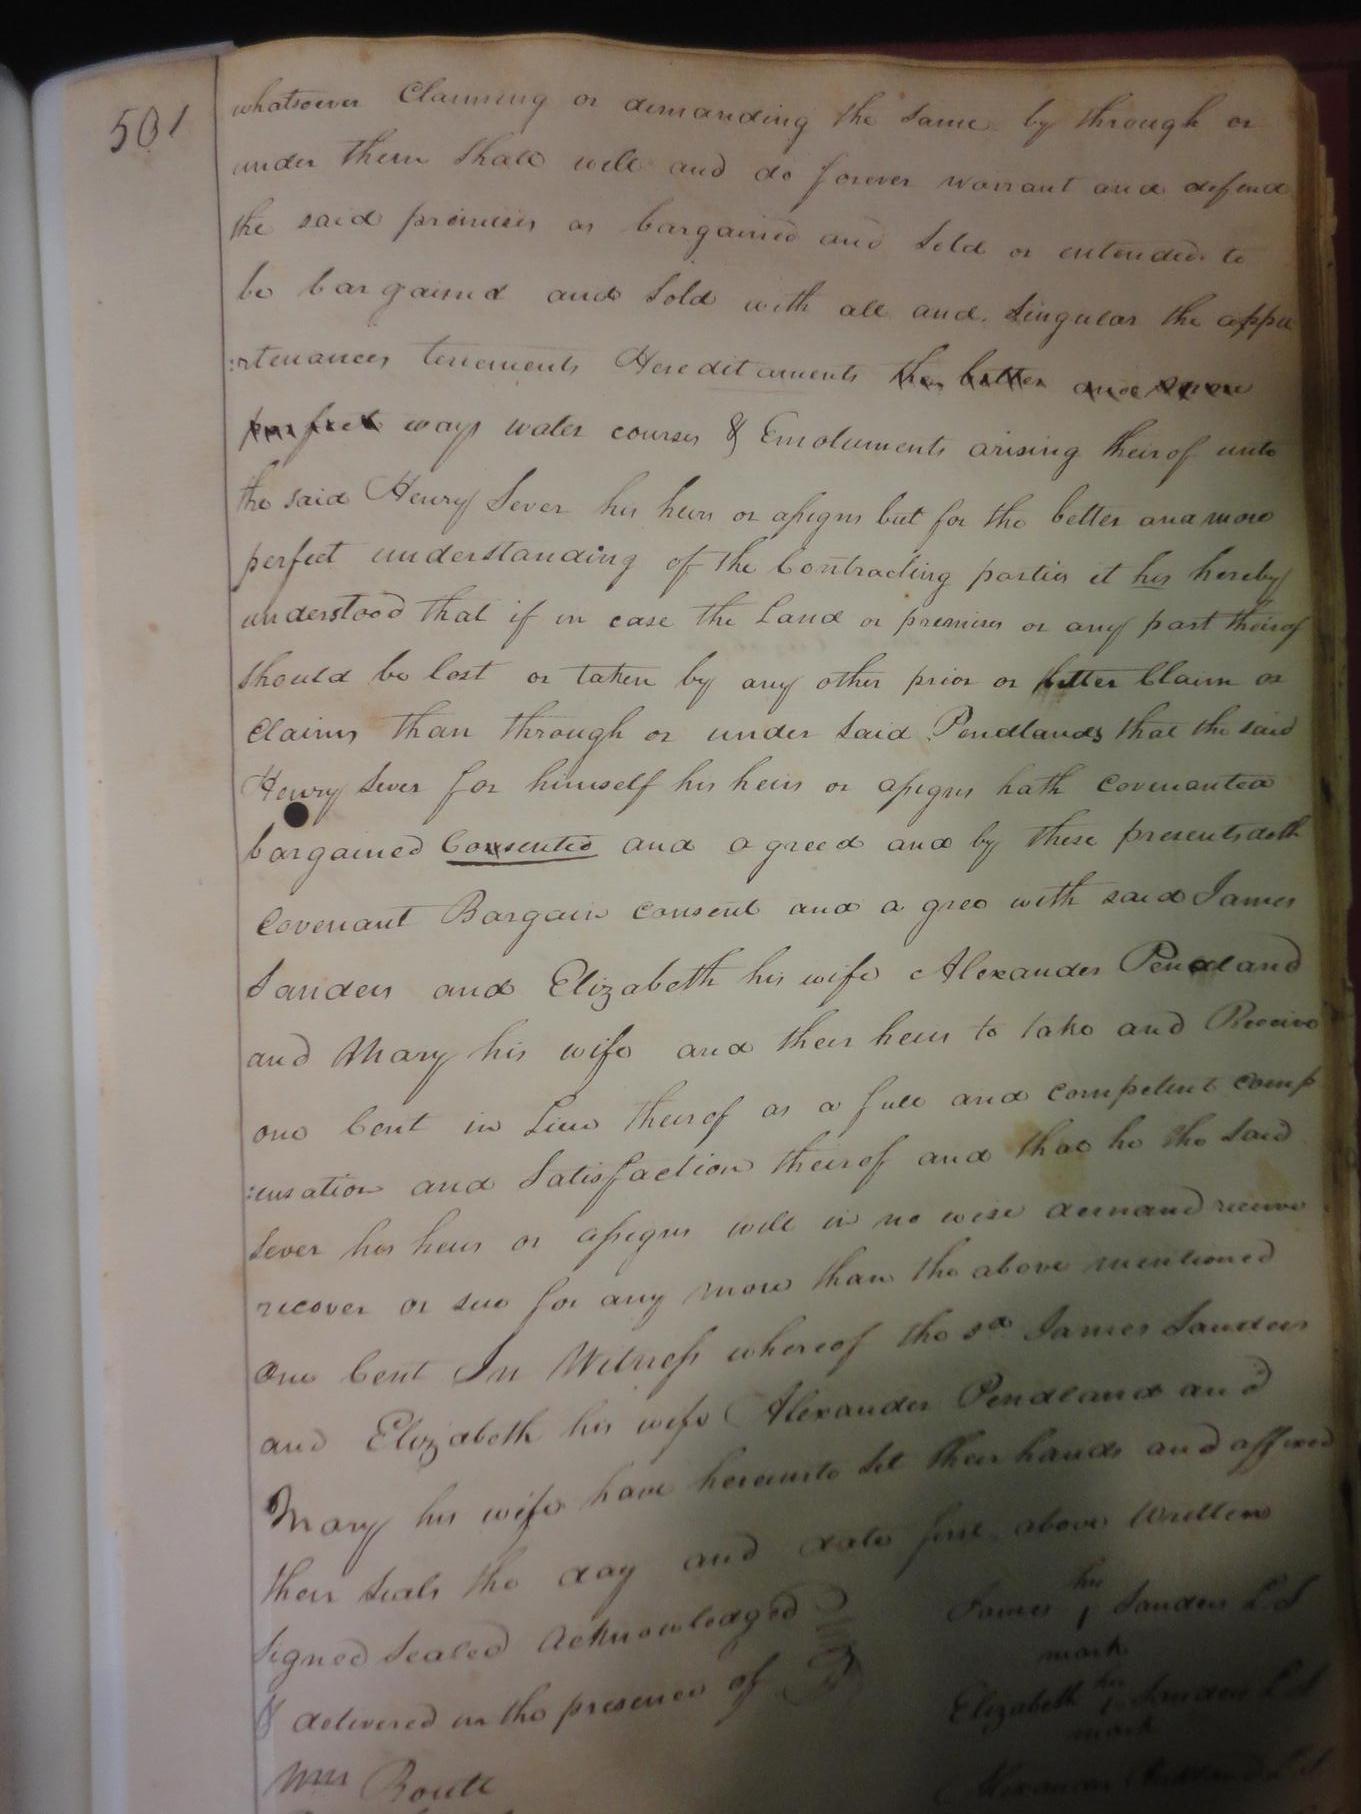 501
whatsoever Claiming or demanding the same by through or
under them shall will and do forever warrant and defend
the said premises as bargained and sold or entended to
be bargained and sold with all and singular the appu
:rtenances tenements Hereditaments the better and more
perfect ways water courses & Emoluments arising theirof unto
the said Henry Sever his heirs or assigns but for the better and more
perfect understanding of the Contracting parties it his hereby
understood that if in case the Land or premises or any part theirof
should be lost or taken by any other prior or better Claim or
Claims than through or under said Pendlands that the said
Henry Sever for himself his heirs or assigns hath covenanted
bargained Consented and agreed and by these presents doth
Covenant Bargain consent and agree with said James
Sanders and Elizabeth his wife Alexander Pendland
and Mary his wife and their heirs to take and Receive
one Cent in Lieu theirof as a full and competent comp
:ensation and Satisfaction theirof and that he the said
Sever his heirs or assigns will in no wise demand receive
recover or sue for any more than the above mentioned
One Cent In Witness whereof the sd James Sanders
and Elizabeth his wife Alexander Pendland and
Mary his wife have hereunto set their hands and affixed
their seals the day and date first above Written
Signed Sealed Acknowledged
& delivered in the presence of
Wm Routt
his
James Sanders L S
mark
her
Elizabeth Sanders L S
mark
Alexander Pendland L S